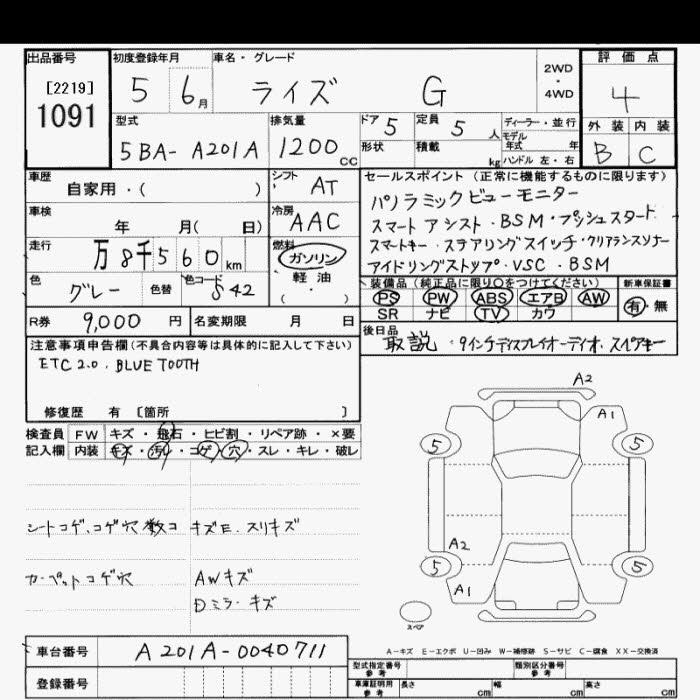 出品番号
[2219]
1091
初度登録年月
5 6月
車名・グレード
ライズ G
2WD
・
4WD
評価点
4
外装 内装
B C
型式
5BA-A201A
排気量
1200 cc
ドア 5
形状
定員 5 人
積載 kg
ディーラー・並行
モデル年式 年
ハンドル 左・右
車歴
自家用・( )
シフト
AT
車検
年 月( 日)
冷房
AAC
走行
万 8千560 km
燃料
ガソリン
軽油
・
( )
色
グレー
色替
色コード
S42
R券 9,000 円
名変期限 月 日
セールスポイント(正常に機能するものに限ります)
パノラミックビューモニター
スマートアシスト・BSM・プッシュスタート
スマートキー・ステアリングスイッチ・クリアランスソナー
アイドリングストップ・VSC・BSM
装備品(純正品に限り○をつけてください)
PS PW ABS エアB AW
SR ナビ TV カワ
新車保証書
有・無
後日品
取説・9インチディスプレイオーディオ.スペアキー
注意事項申告欄(不具合内容等は具体的に記入して下さい)
ETC2.0.BLUETOOTH
修復歴 有 [箇所 ]
検査員
記入欄
FW キズ・飛石・ヒビ割・リペア跡・×要
内装 キズ・汚レ・コゲ・穴・スレ・キレ・破レ
シートコゲ、コゲ穴数コ
キズE.スリキズ
カーペットコゲ穴
AWキズ
Dミラ・キズ
A2
A1
5
5
A2
5
5
A1
スペア
A-キズ E-エクボ U-凹み W-補修跡 S-サビ C-腐食 XX-交換済
車台番号
A201A-0040711
登録番号
型式指定番号
参考
類別区分番号
参考
車庫証明用
参考
長さ cm
幅 cm
高さ cm